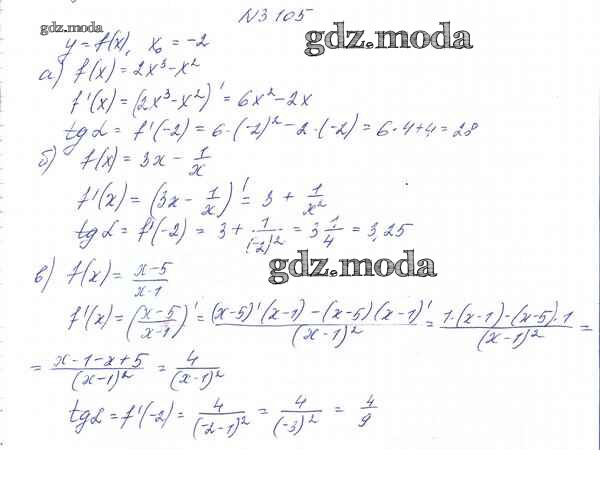 N3 105
gdz.moda
gdz.moda
y = f(x), x₀ = -2
а) f(x) = 2x³ - x²
f'(x) = (2x³ - x²)' = 6x² - 2x
tg L = f'(-2) = 6·(-2)² - 2·(-2) = 6·4+4 = 28
б) f(x) = 3x - 1/x
f'(x) = (3x - 1/x)' = 3 + 1/x²
tg L = f'(-2) = 3 + 1/(-2)² = 3 1/4 = 3,25
gdz.moda
в) f(x) = (x-5)/(x-1)
f'(x) = ((x-5)/(x-1))' = ((x-5)'(x-1) - (x-5)(x-1)')/(x-1)² = (1·(x-1)-(x-5)·1)/(x-1)² =
= (x-1-x+5)/(x-1)² = 4/(x-1)²
tg L = f'(-2) = 4/(-2-1)² = 4/(-3)² = 4/9